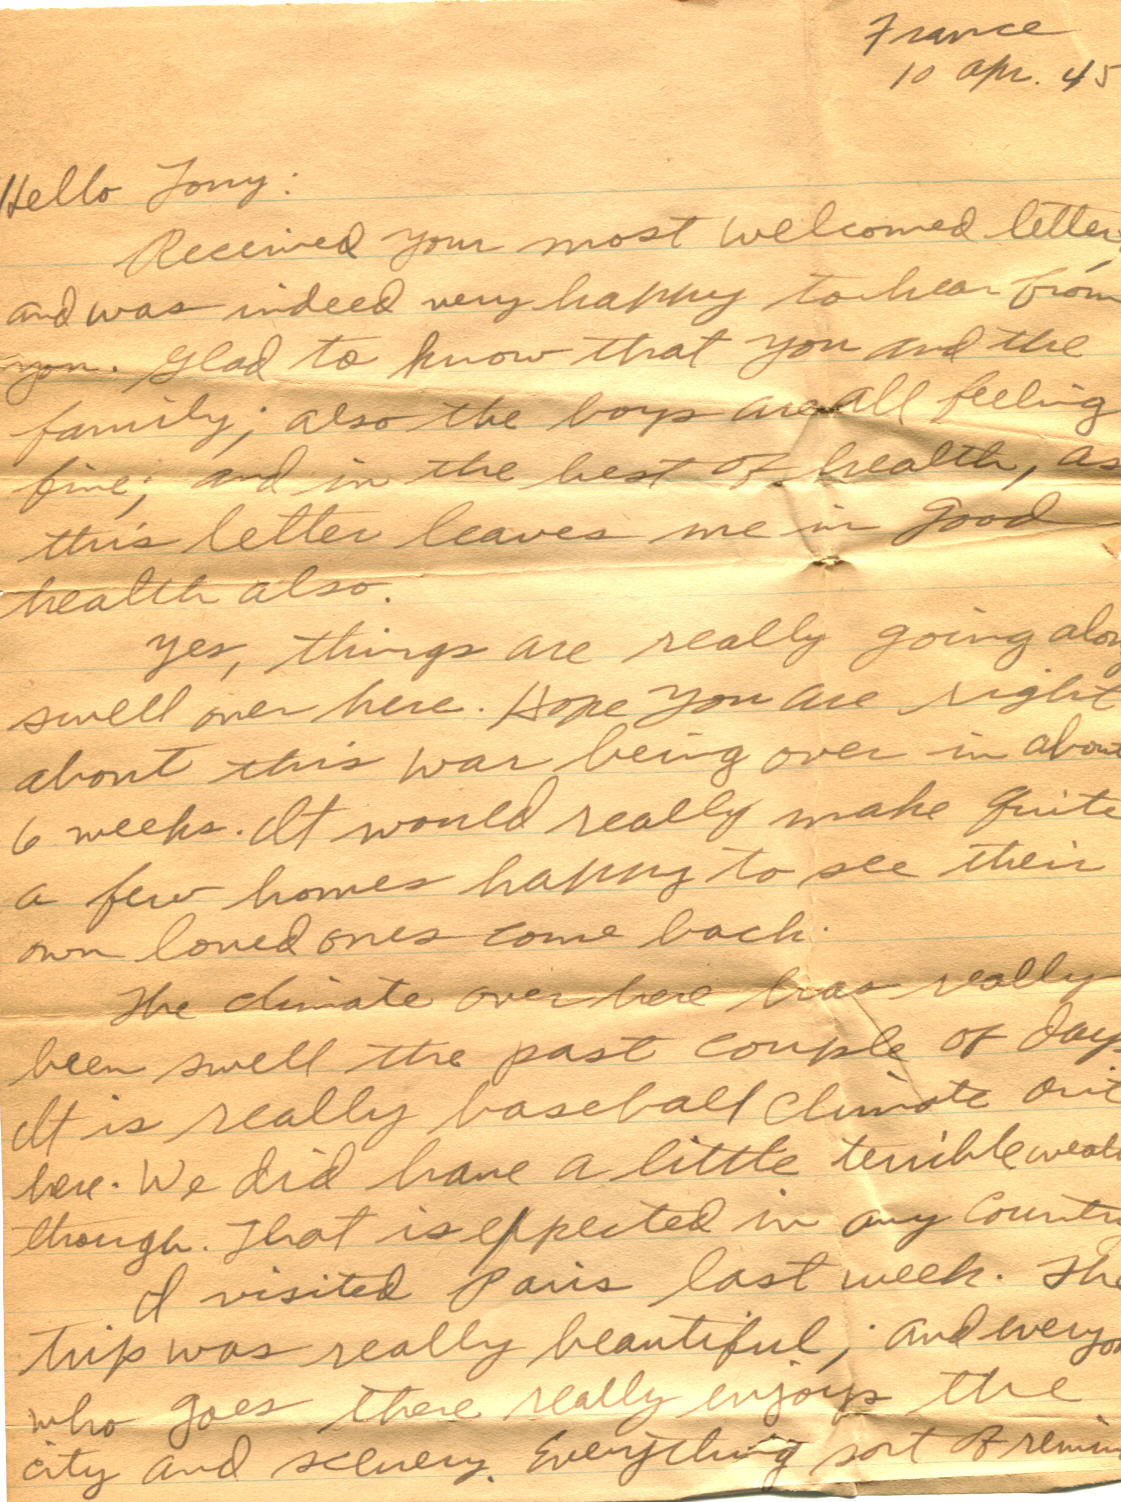 France
10 Apr. 45
Hello Tony:
Received your most welcomed letter,
and was indeed very happy to hear from
you. Glad to know that you and the
family; also the boys are all feeling
fine; and in the best of health, as
this letter leaves me in good
health also.
Yes, things are really going alon
swell over here. Hope you are right
about this war being over in about
6 weeks. It would really make quite
a few homes happy to see their
own loved ones come back.
The climate over here has really
been swell the past couple of days
It is really baseball climate out
here. We did have a little terrible weath
though. That is expected in any Country
I visited Paris last week. The
trip was really beautiful; and everyon
who goes there really enjoys the
city and scenery. Everything sort of remin